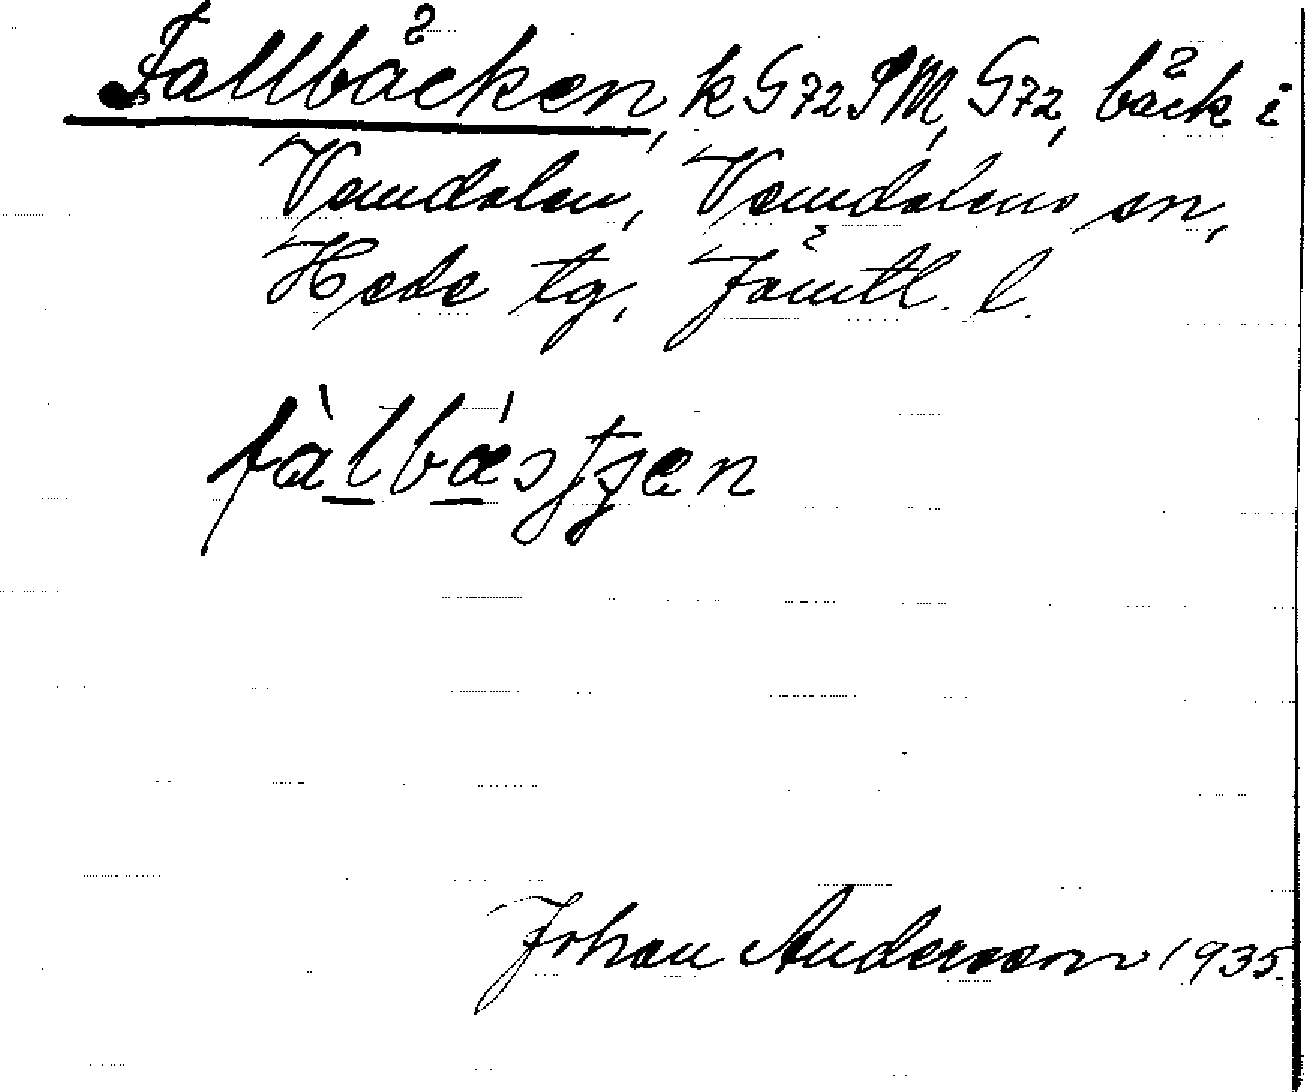 Fallbäcken, k G72 PM, G72, bäck i
Vemdalen, Vemdalens sn,
Hede tg, Jämtl. l.
Johan Andersson 1935.